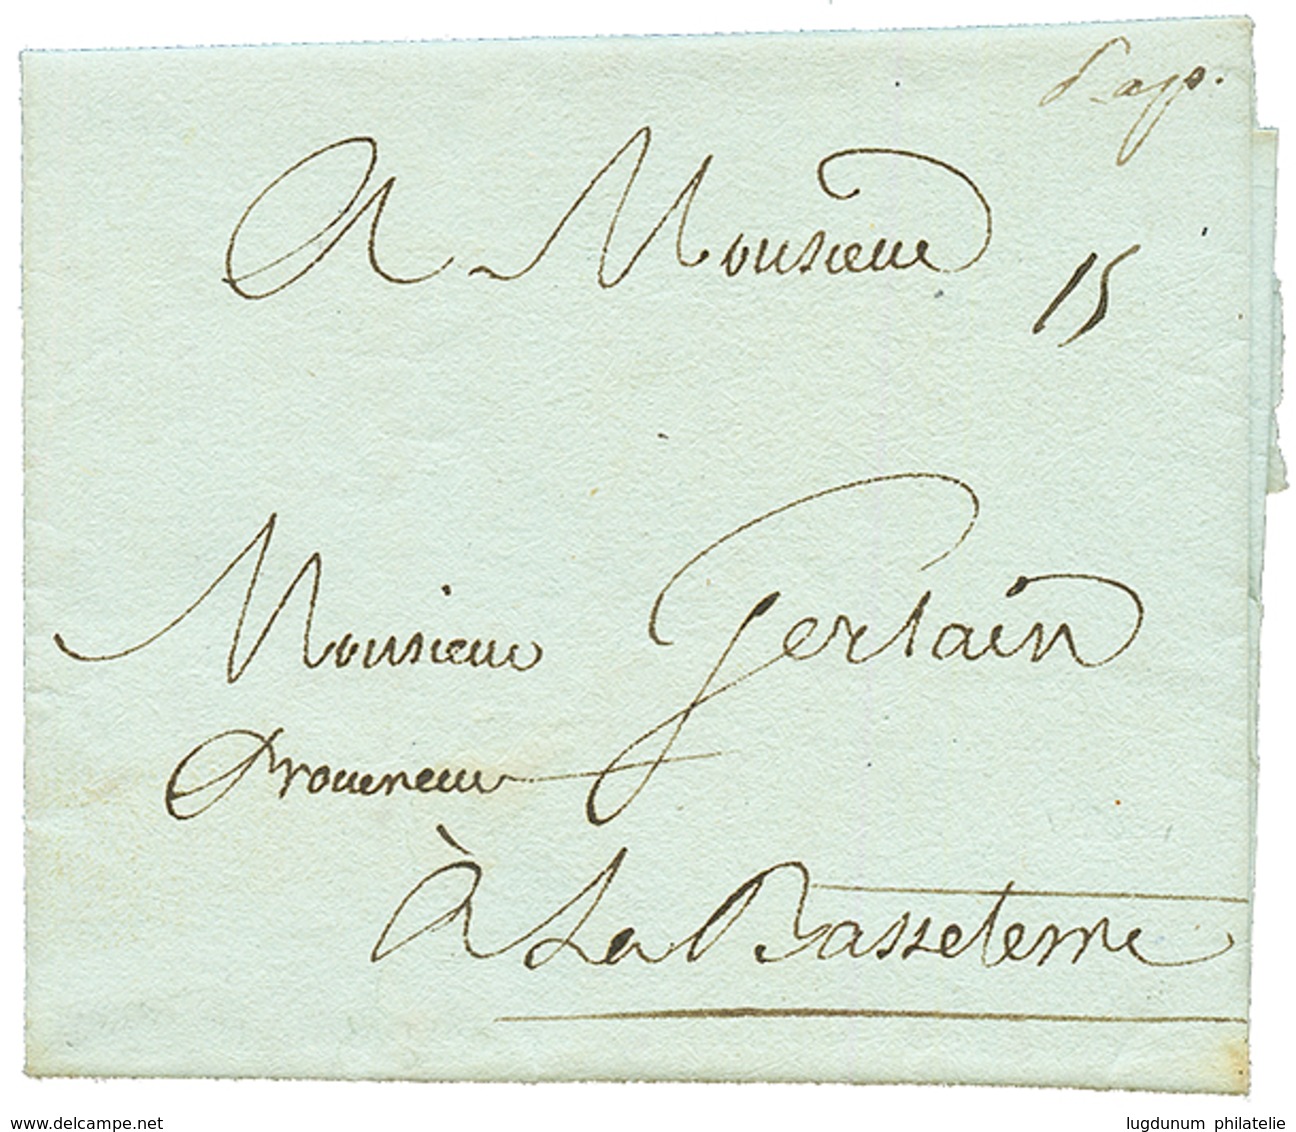 A Monsieur
15
Monsieur Gerlain
Procureur
à La Basseterre
www.delcampe.net
lugdunum philatelie